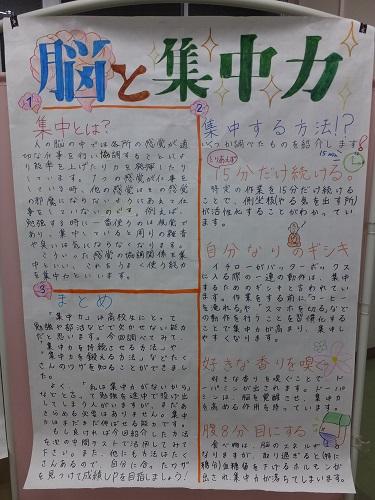 脳と集中力
1
集中とは?
人の脳の中では各所の感覚が適
切な仕事を行い協調することにより
効率を上げたり力を発揮したり
しています。1つの感覚が仕事を
している時、他の感覚はその感覚
の邪魔にならないようにあえて仕
事をしていないのです。例えば、
勉強する時に一番使うのは視覚で
あり、集中していると周りの雑音
や臭いは気にならなくなります。
こういった感覚の協調関係を集
中といい、これをうまく使う能力
を集中力といいます。
2
集中する方法!?
いくつか調べたものを紹介します!
15min
とりあえず
15分だけ続ける。
特定の作業を15分だけ続けるこ
とで、側坐核(やる気を出す所)
が活性化することがわかってい
ます。
自分なりのギシキ
イチローがバッターボックス
に入る際の一連の動作は、集中す
るためのギシキと言われていま
す。作業をする前に「コーヒー
を淹れる」や「スマホを切る」などの
動作を行うことを習慣化する
ことで集中力が高まり、集中し
やすくなります。
好きな香りを嗅ぐ
好きな香りを嗅ぐことで、ドー
パミンが出されます。ドーパミ
ンは、脳を覚醒させ、集中力
を高める作用を持っています。
腹8分目にする
食べ物は、脳のエネルギーに
なりますが、取り過ぎると(特に
糖分)血糖値を下げるホルモンが
出され集中力が落ちてしまいます。
3
まとめ
「集中力」は高校生にとって
勉強や部活などで欠かせない能力
だと思います。今回調べてみて
「集中力を持続させる方法」や
「集中力を鍛える方法」などたく
さんのワザを知ることができまし
た。
よく、「私は集中力がないから」
などと言って勉強を途中で投げ出
してしまう人がいますが、まだあ
きらめる必要はありません。集中
力はまだまだ伸ばせる能力です。
もし良ければ今回紹介した方法
を次の中間テストで活用してみて
下さい。また、他にも方法はたく
さんあるので、自分に合ったワザ
を見つけて成績UPを目指しましょう!